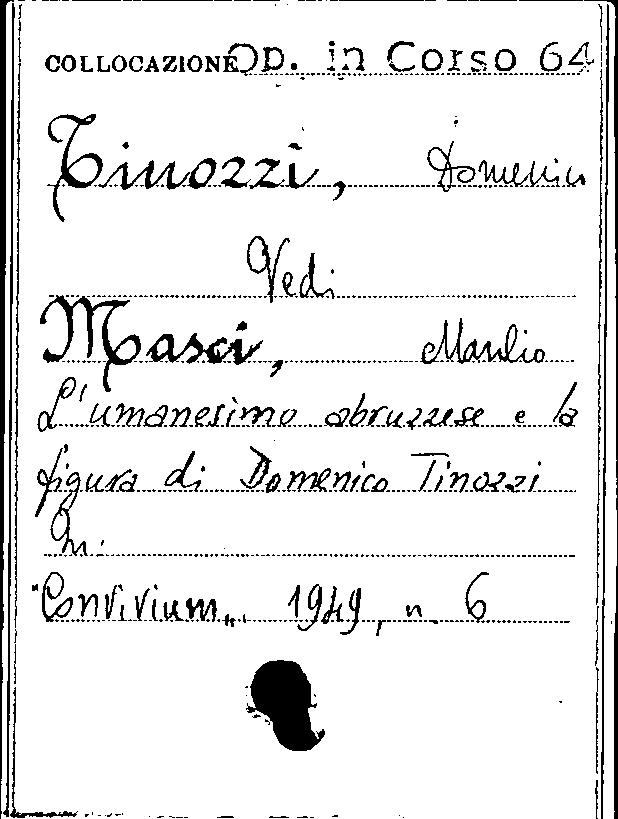 COLLOCAZIONE Op. in Corso 64
Tinozzi, Domenico
Vedi
Masci, Manlio
L'umanesimo abruzzese e la
figura di Domenico Tinozzi
In:
"Convivium„ 1949, n. 6